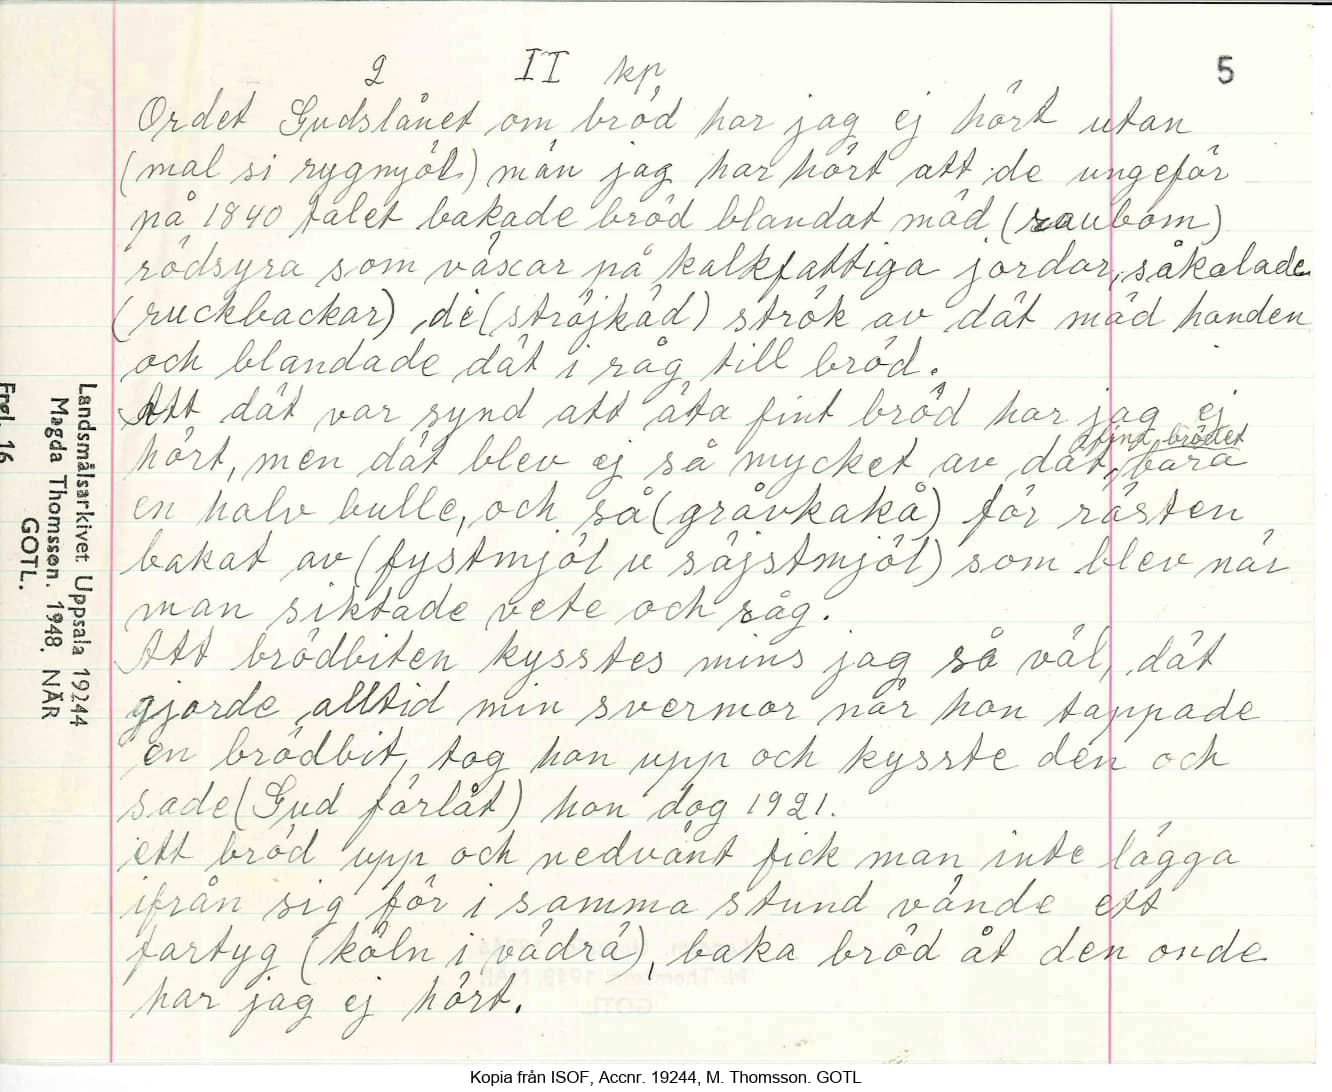 2 II kp 5
Ordet Gudslånet om bröd har jag ej hört utan
(mal si rygmjöl) män jag har hört att de ungeför
på 1840 talet bakade bröd blandat mäd (raubom)
rödsyra som växar på kalkfattiga jordar, såkalade
(ruckbackar), di (ströjkäd) strök av dät mäd handen
och blandade dät i råg till bröd.
Att dät var synd att äta fint bröd har jag ej
hört, men dät blev ej så mycket av dät, fina brödet bara
en halv bulle, och så (gråvkakå) för rästen
bakat av (fystmjöl u säjstmjöl) som blev när
man siktade vete och råg.
Att brödbiten kysstes mins jag så väl, dät
gjorde alltid min svermor när hon tappade
en brödbit, tog hon upp och kysste den och
sade (Gud förlåt) hon dog 1921.
ett bröd upp och nedvänt fick man inte lägga
ifrån sig för i samma stund vände ett
fartyg (köln i vädrä), baka bröd åt den onde
har jag ej hört.
Landsmålsarkivet Uppsala 19244
Magda Thomsson. 1948. NÄR
GOTL.
Frgl. 16
Kopia från ISOF, Accnr. 19244, M. Thomsson. GOTL